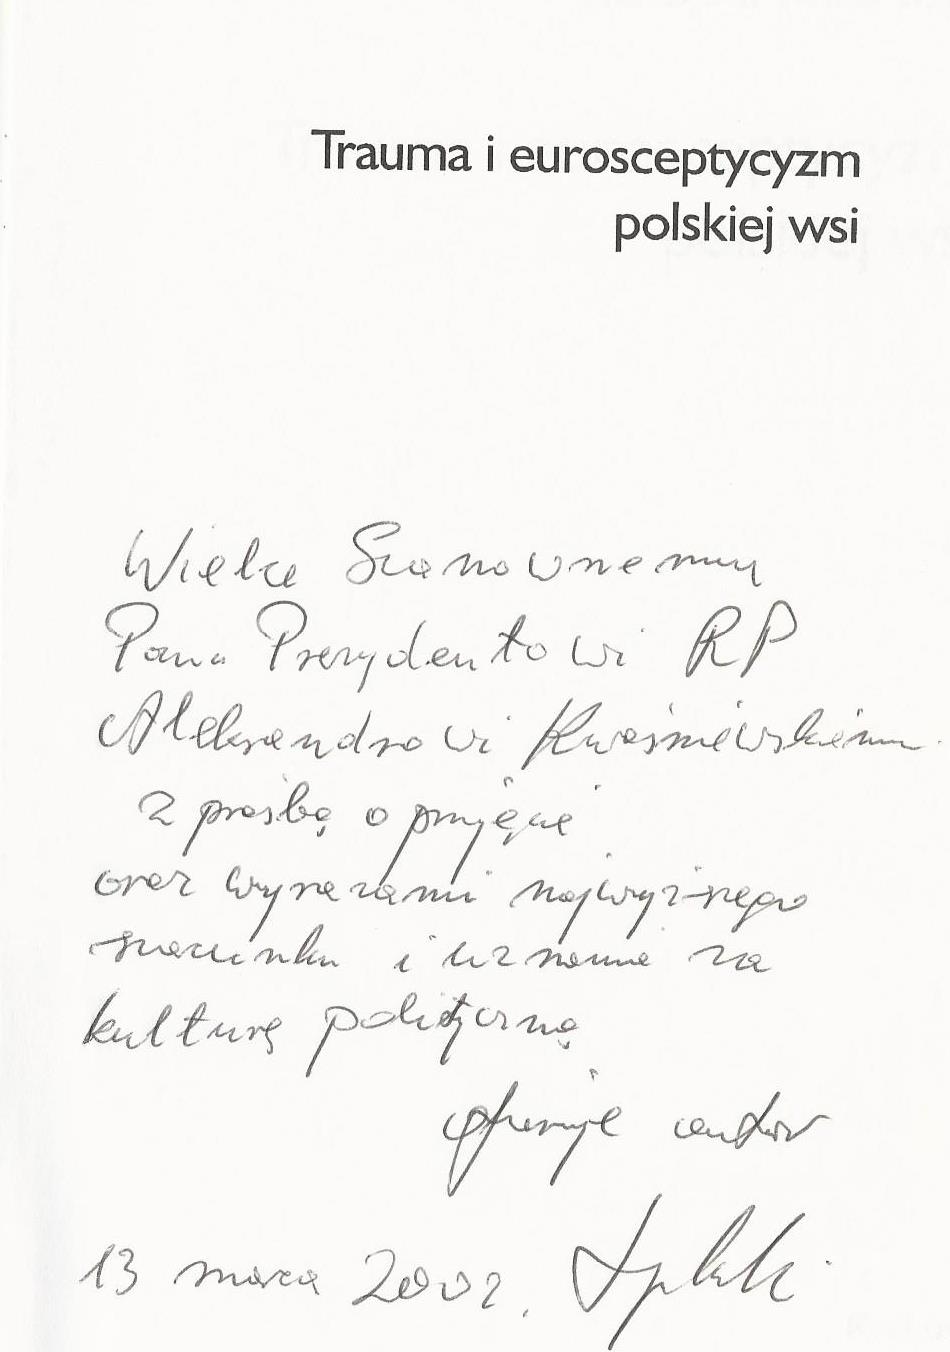 Trauma i eurosceptycyzm
polskiej wsi
Wielce Szanownemu
Panu Prezydentowi RP
Aleksandrowi Kwaśniewskiemu
z prośbą o przyjęcie
oraz wyrazami najwyższego
szacunku i uznania za
kulturę polityczną
ofiaruje autor
13 marca 2002.